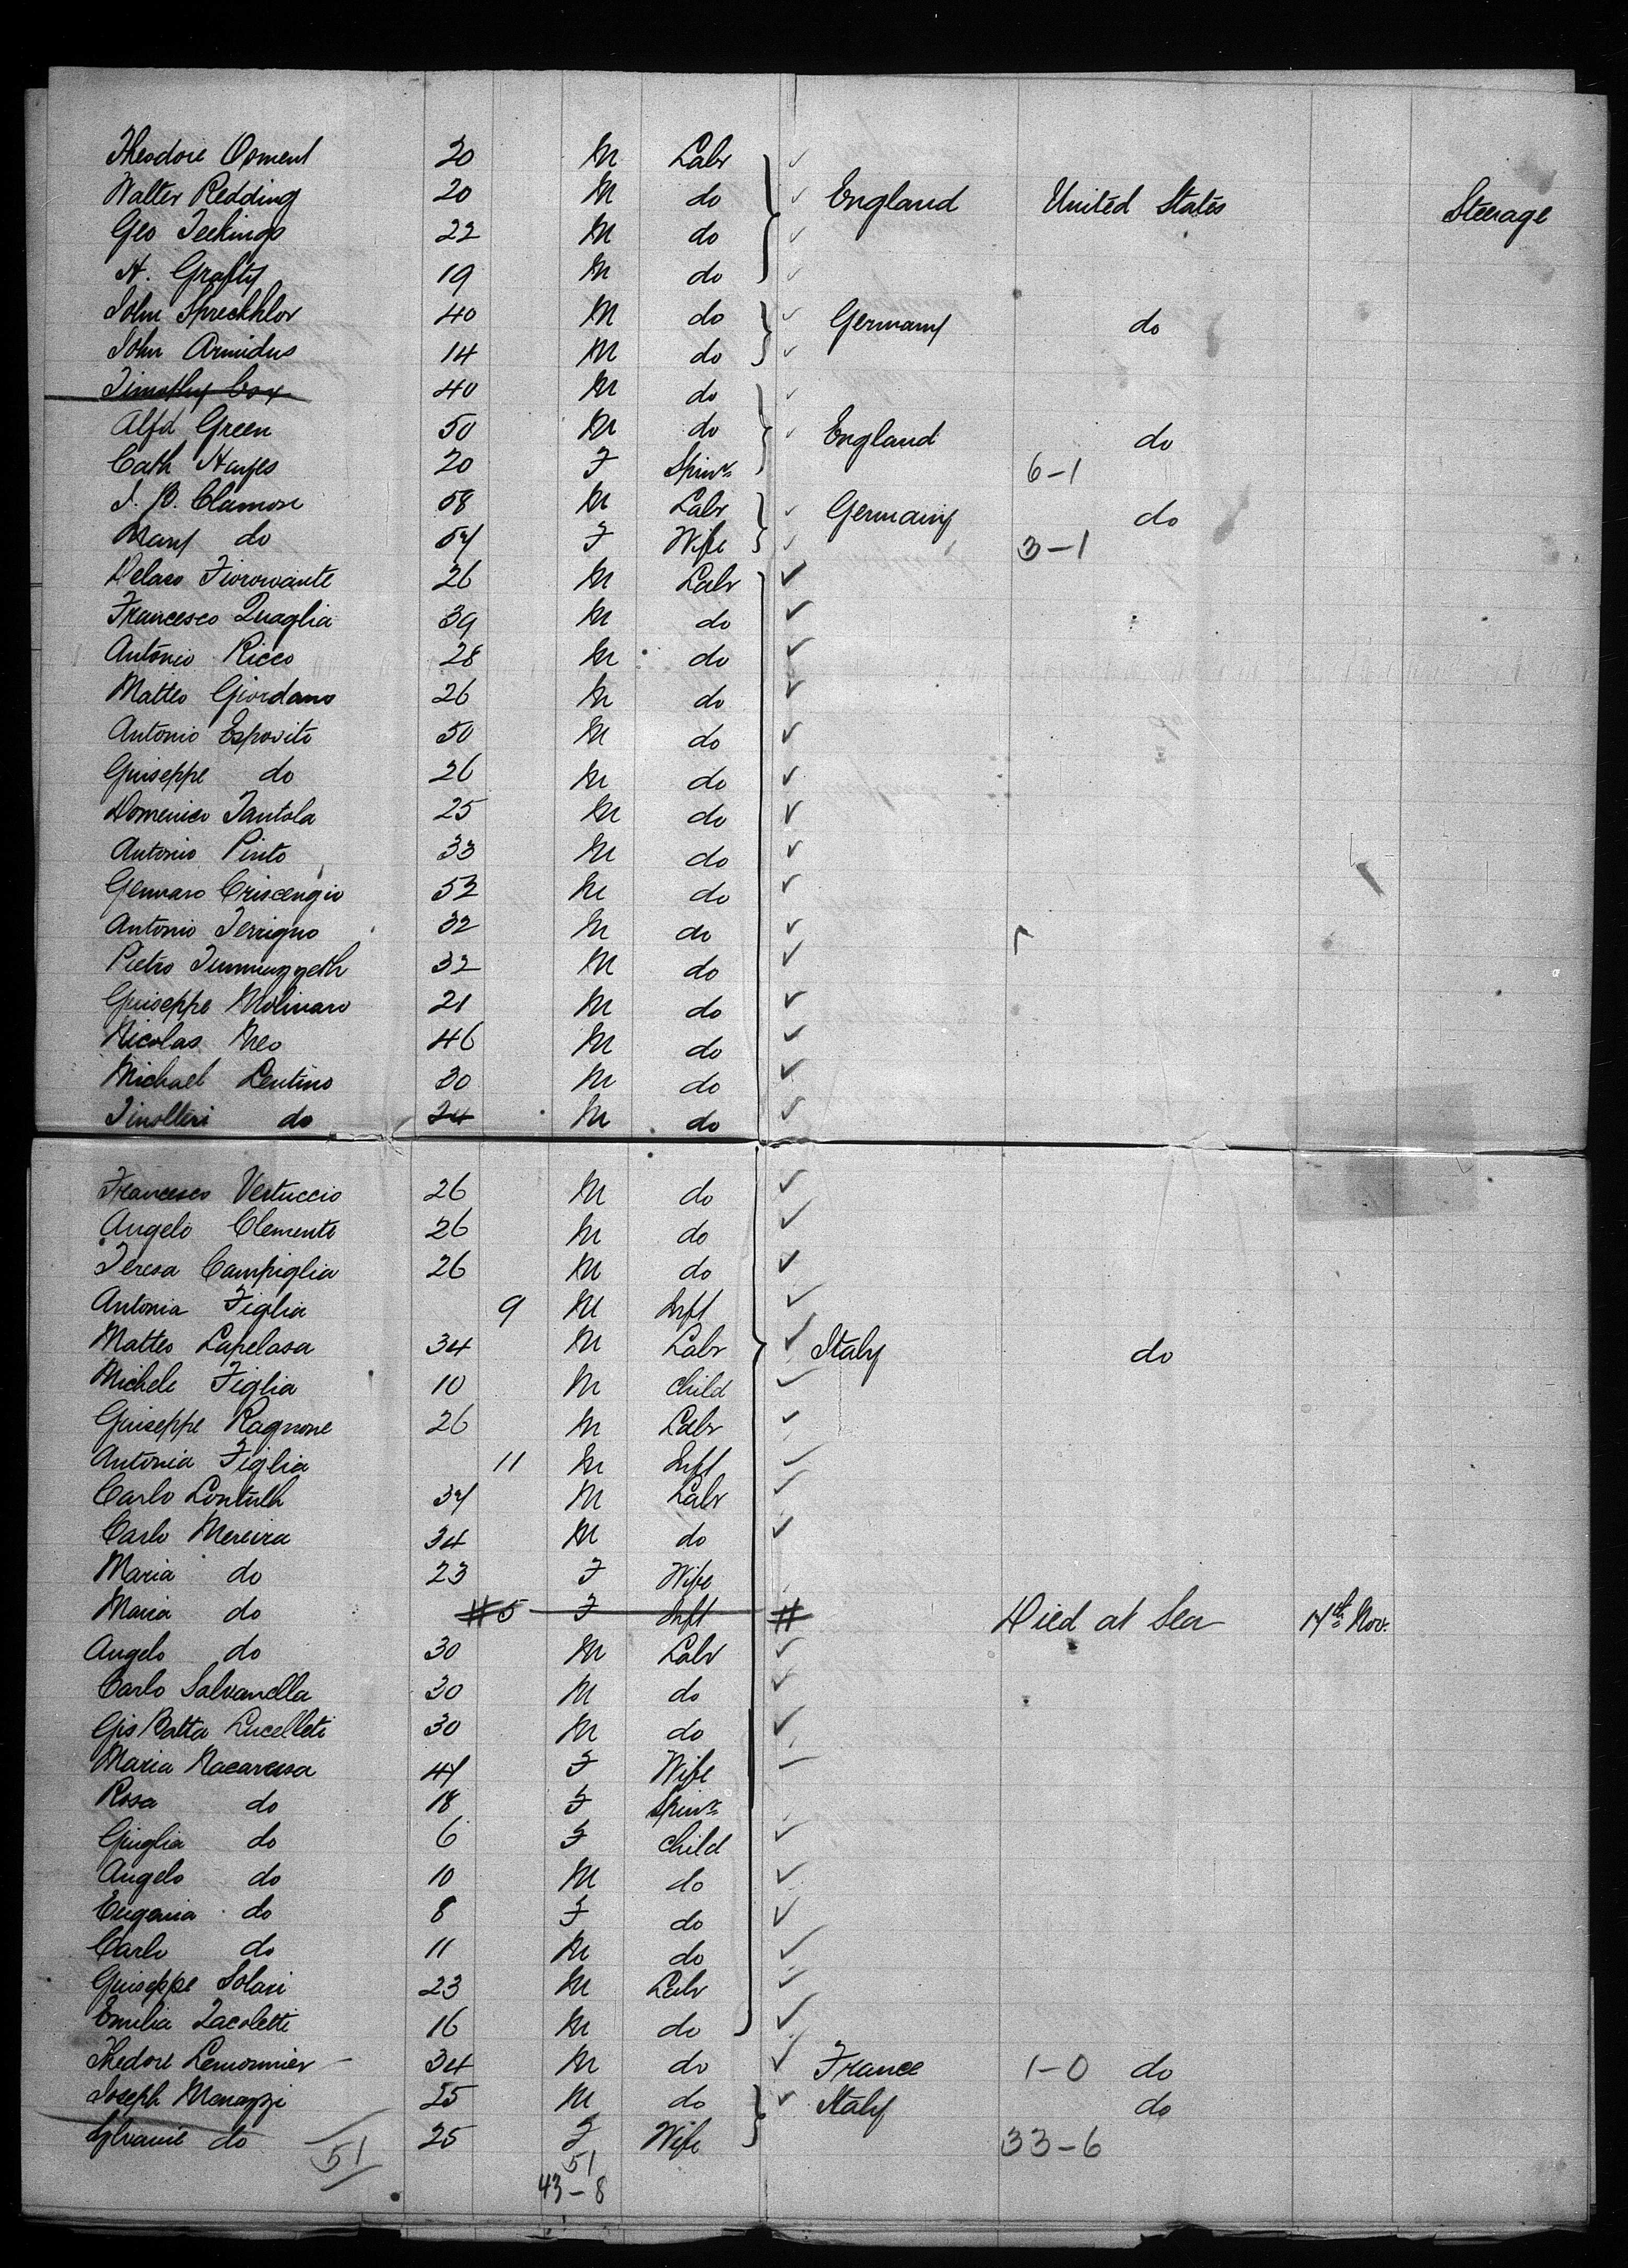 Theodore Oment 20 M Labr
Walter Redding 20 M do England United States Steerage
Geo Jeekings 22 M do
H. Grafty 19 M do
John Spreckhlor 40 M do Germany do
John Armidus 14 M do
Timothy Cox 40 M do
Alfd Green 50 M do England do
Cath Hayes 20 F Spinr 6-1
J. B. Clamore 58 M Labr Germany do
Mary do 54 F Wife 3-1
Delaro Fiorowante 26 M Labr
Francesco Quaglia 39 M do
Antonio Ricco 28 M do
Matteo Giordano 26 M do
Antonio Esposito 50 M do
Guiseppe do 26 M do
Domenico Tantola 25 M do
Antonio Pinto 33 M do
Gennaro Criscengio 53 M do
Antonio Terrigno 32 M do
Pietro 32 M do
Guiseppe Molinaro 21 M do
Nicolas Meo 46 M do
Michael Lentino 30 M do
do 24 M do
Francesco Vertuccio 26 M do
Angelo Clemento 26 M do
Teresa Campiglia 26 M do
Antonia Figlia 9 M Inft
Matteo Lapelasa 34 M Labr Italy do
Michele Figlia 10 M child
Guiseppe Ragnone 26 M Labr
Antonia Figlia 11 M Inft
Carlo 34 M Labr
Carlo Mereira 34 M do
Maria do 23 F Wife
Maria do # 5 F Inft # Died at Sea 14th Nov.
Angelo do 30 M Labr
Carlo Salvanella 30 M do
Gis Batta Lucelleti 30 M do
Maria Nacarezsa 44 F Wife
Rosa do 18 F Spinr
Giuglia do 6 F child
Angelo do 10 M do
Eugenia do 8 F do
Carlo do 11 M do
Guiseppe Solari 23 M Labr
Emilia Zacoletti 16 M do
Thedore Lemonnier 34 M do France 1-0 do
Joseph Menazzi 25 M do Italy do
Sylvanie do 25 F Wife 33-6
51 51
43-8